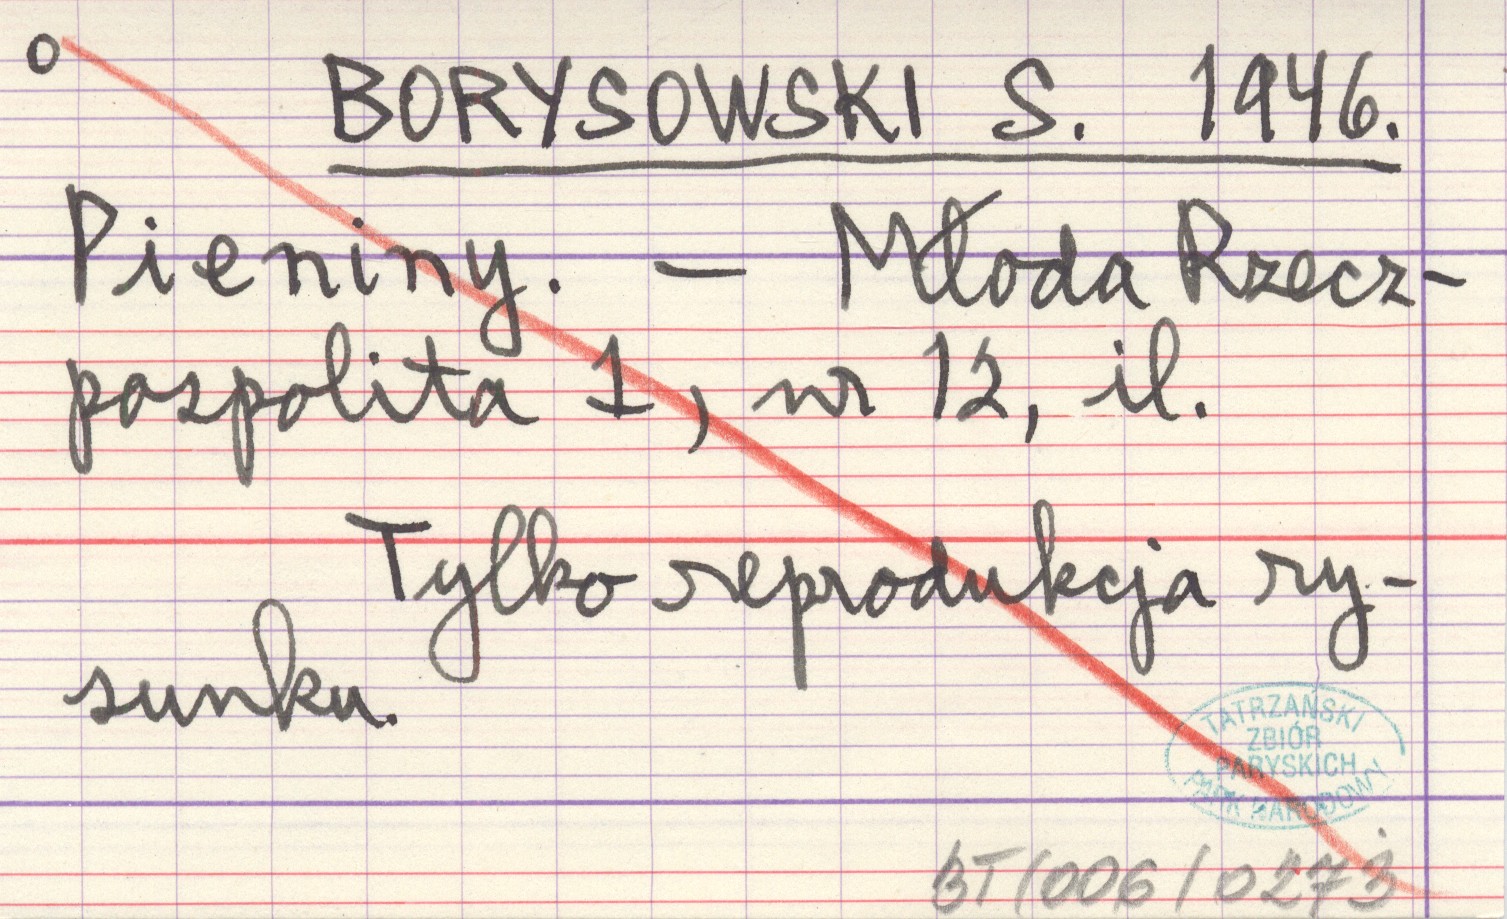 o
BORYSOWSKI S. 1946.
Pieniny. — Młoda Rzecz-
pospolita 1, nr 12, il.
Tylko reprodukcja ry-
sunku.
TATRZAŃSKI
ZBIÓR
PARYSKICH
PARK NARODOWY
BT/006/0273